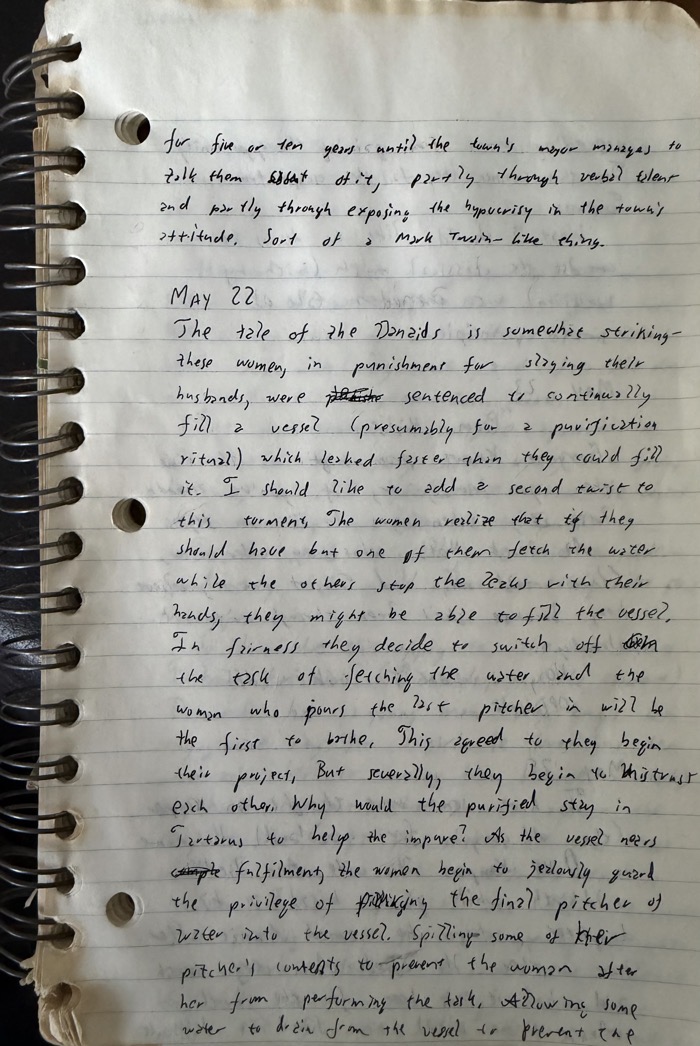 for five or ten years until the town's mayor manages to
talk them out of it, partly through verbal talent
and partly through exposing the hypocrisy in the town's
attitude. Sort of a Mark Twain-like thing.
MAY 22
The tale of the Danaids is somewhat striking-
these women, in punishment for slaying their
husbands, were sentenced to continually
fill a vessel (presumably for a purification
ritual) which leaked faster than they could fill
it. I should like to add a second twist to
this torment. The women realize that if they
should have but one of them fetch the water
while the others stop the leaks with their
hands, they might be able to fill the vessel.
In fairness they decide to switch off
the task of fetching the water and the
woman who pours the last pitcher in will be
the first to bathe. This agreed to they begin
their project. But severally, they begin to mistrust
each other. Why would the purified stay in
Tartarus to help the impure? As the vessel nears
fulfilment, the women begin to jealously guard
the privilege of the final pitcher of
water into the vessel. Spilling some of their
pitcher's contents to prevent the woman after
her from performing the task. Allowing some
water to drain from the vessel to prevent the